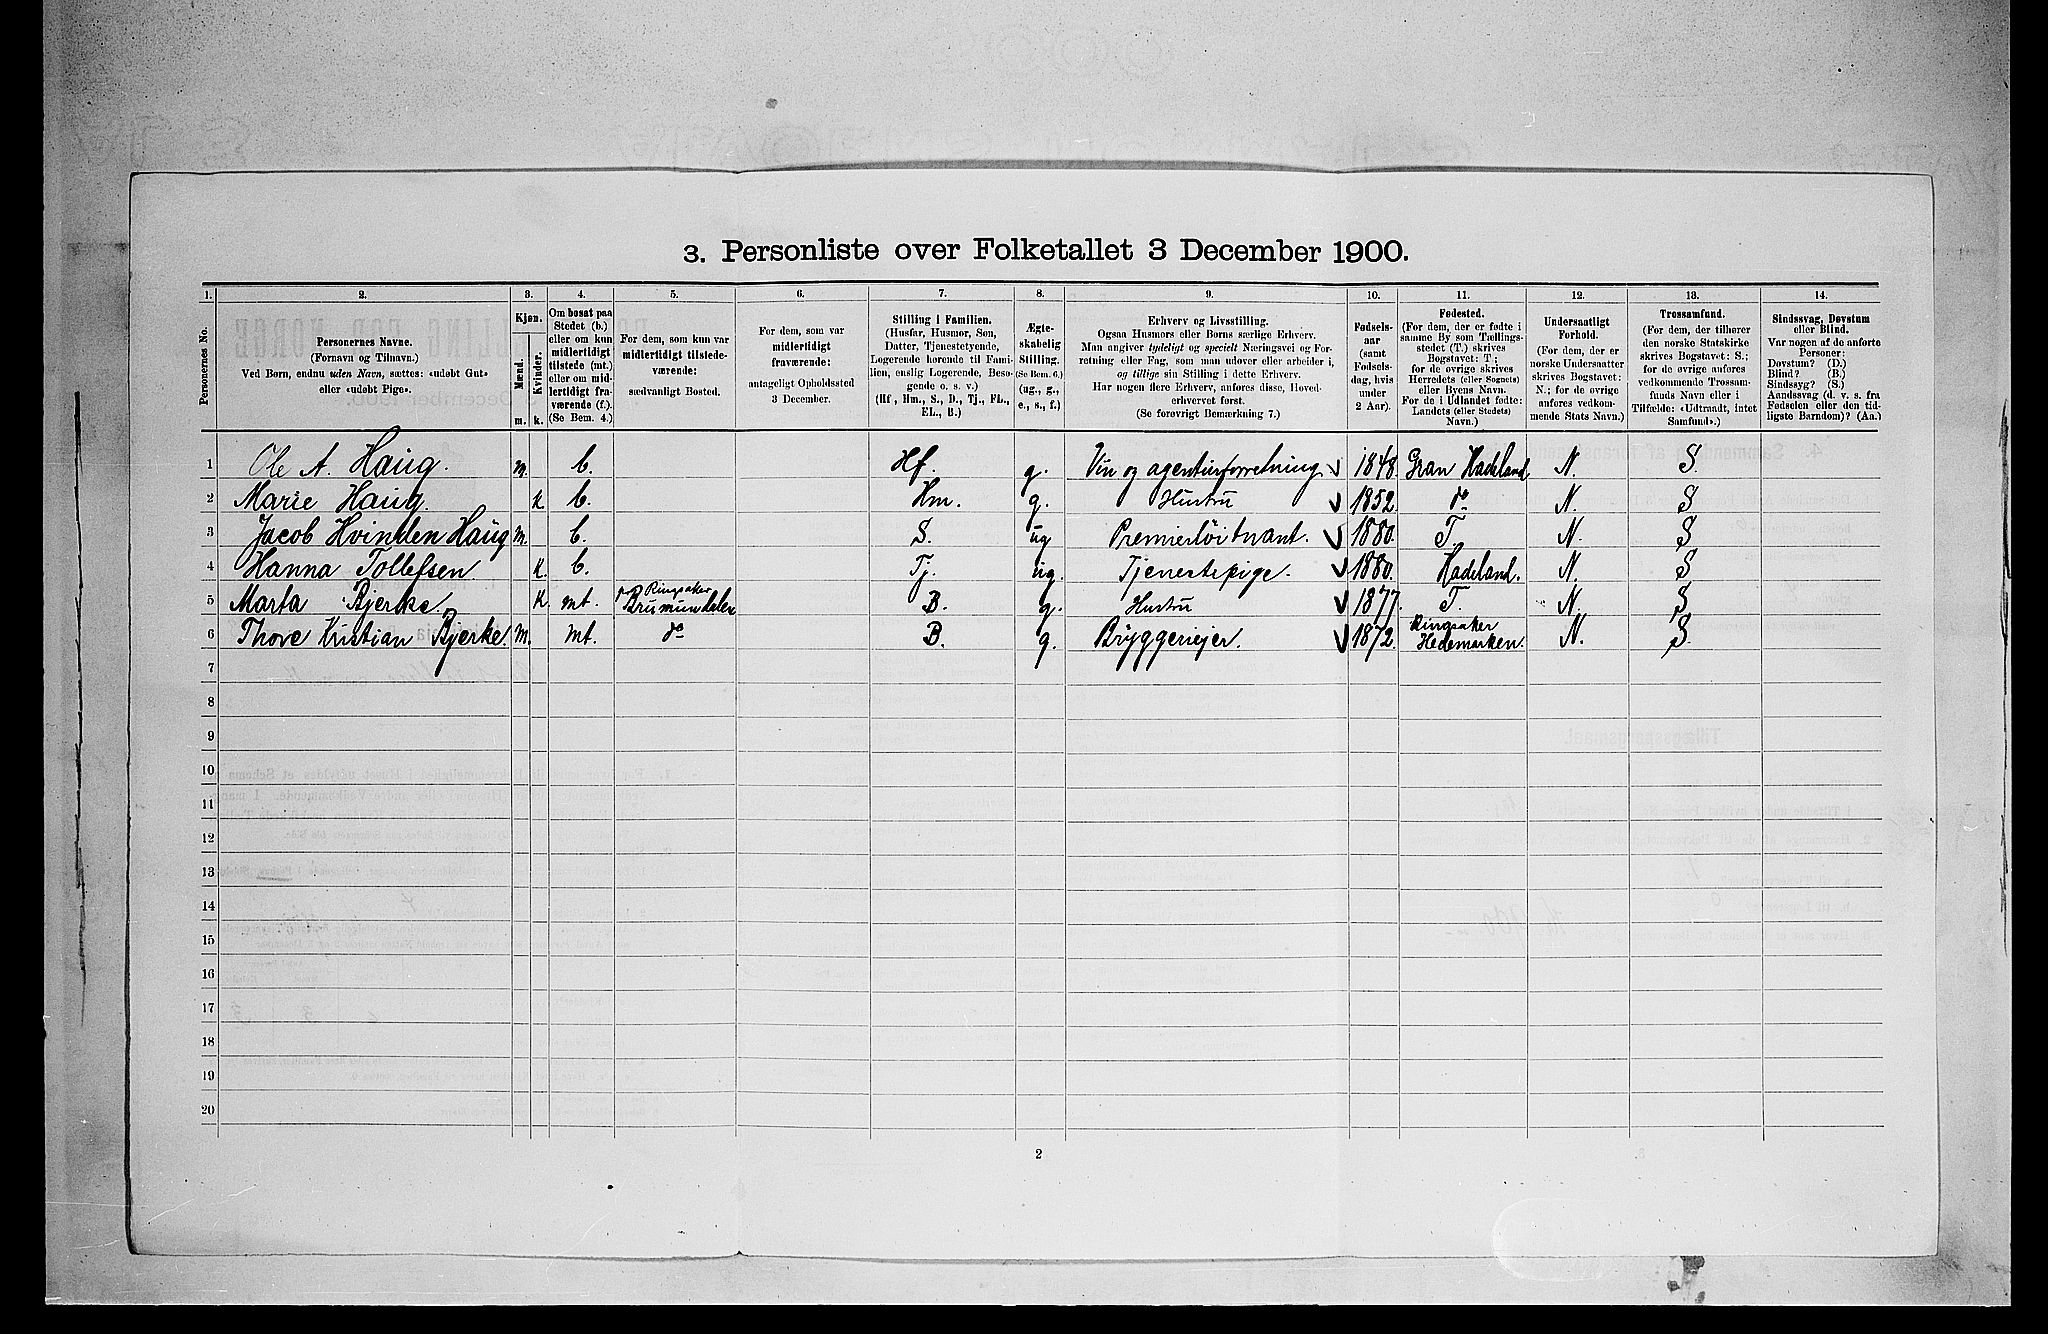 3. Personliste over Folketallet 3 December 1900.
1. 2. 3. 4. 5. 6. 7. 8. 9. 10. 11. 12. 13. 14.
Personernes No.
Personernes Navne.
(Fornavn og Tilnavn.)
Ved Børn, endnu uden Navn, sættes: «udøbt Gut»
eller «udøbt Pige».
Kjøn.
Mænd.
Kvinder.
m. k.
Om bosat paa
Stedet (b.)
eller om kun
midlertidigt
tilstede (mt.)
eller om mid-
lertidigt fra-
værende (f.).
(Se Bem. 4.)
For dem, som kun var
midlertidigt tilstede-
værende:
sædvanligt Bosted.
For dem, som var
midlertidigt
fraværende:
antageligt Opholdssted
3 December.
Stilling i Familien.
(Husfar, Husmor, Søn,
Datter, Tjenestetyende,
Logerende hørende til Fami-
lien, enslig Logerende, Besø-
gende o. s. v.)
(Hf., Hm., S., D., Tj., FL.,
EL., B.)
Ægte-
skabelig
Stilling.
(Se Bem. 6.)
(ug., g.,
e., s., f.)
Erhverv og Livsstilling.
Ogsaa Husmors eller Børns særlige Erhverv.
Man angiver tydeligt og specielt Næringsvei og For-
retning eller Fag, som man udøver eller arbeider i,
og tillige sin Stilling i dette Erhverv.
Har nogen flere Erhverv, anføres disse, Hoved-
erhvervet først.
(Se forøvrigt Bemærkning 7.)
Fødsels-
aar
(samt
Fødsels-
dag, hvis
under
2 Aar).
Fødested.
(For dem, der er fødte i
samme By som Tællings-
stedet (T.) skrives
Bogstavet: T;
for de øvrige skrives
Herredets (eller Sognets)
eller Byens Navn.
For de i Udlandet fødte:
Landets (eller Stedets)
Navn.)
Undersaatligt
Forhold.
(For dem, der er
norske Undersaatter
skrives Bogstavet:
N.; for de øvrige
anføres vedkom-
mende Stats Navn.)
Trossamfund.
(For dem, der tilhører
den norske Statskirke
skrives Bogstavet: S.;
for de øvrige anføres
vedkommende Trossam-
funds Navn eller i
Tilfælde: «Udtraadt, intet
Samfund».)
Sindssvag, Døvstum
eller Blind.
Var nogen af de anførte
Personer:
Døvstum? (D.)
Blind? (B.)
Sindssyg? (S.)
Aandssvag (d. v. s. fra
Fødselen eller den tid-
ligste Barndom)? (Aa.)
1 Ole A. Haug. m. b. Hf. g. Vin og agenturforretning 1848. Gran Hadeland N. S.
2 Marie Haug. k b. Hm. g. Hustru 1852 do N. S
3 Jacob Hvinden Haug m. b. S. ug Premierløitnant. 1880. T. N. S
4 Hanna Tollefsen k. b. Tj. ug. Tjenestepige. 1880. Hadeland. N. S
5 Marta Bjerke. k mt. Ringsaker Brumundalen B. g. Hustru 1877. T. N. S
6 Thove Kristian Bjerke. m. mt. do B. g. Bryggeriejer. 1872. Ringsaker Hedemarken. N. S.
7
8
9
10
11
12
13
14
15
16
17
18
19
20
2